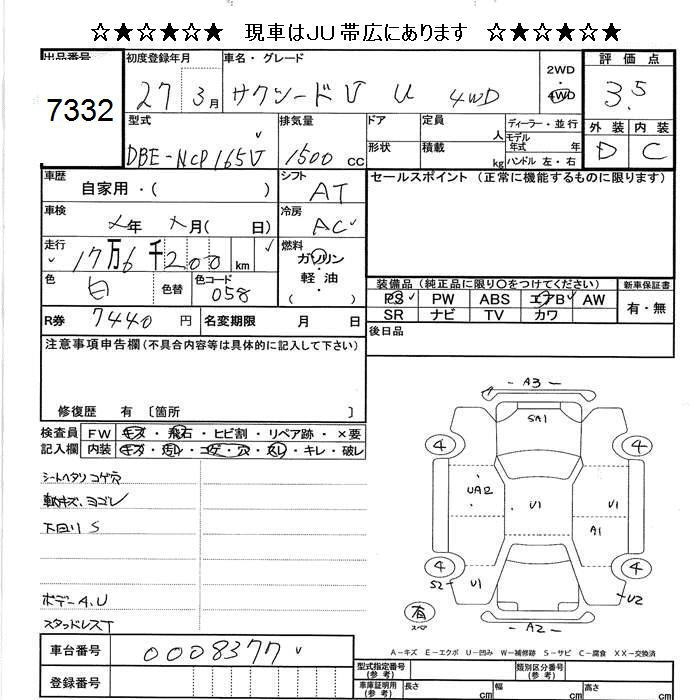 ☆★☆★☆★ 現車はJU帯広にあります ☆★☆★☆★
出品番号 初度登録年月 車名・グレード 2WD 4WD 評価点
7332 27 3月 サクシードV U 4WD 3.5
型式 排気量 ドア 定員 人 ディーラー・並行 外装 内装
DBE-NCP165V 1500 CC 形状 積載 kg モデル年式 年 ハンドル 左・右 D C
車歴 自家用・( ) シフト AT セールスポイント (正常に機能するものに限ります)
車検 メ年 メ月( 日) 冷房 AC
走行 17万6千200 km 燃料 ガソリン 軽・油 ( )
色 白 色替 色コード 058
装備品(純正品に限り〇をつけてください) 新車保証書
PS PW ABS エアB AW 有・無
SR ナビ TV カワ
R券 7440円 名変期限 月 日 後日品
注意事項申告欄(不具合内容等は具体的に記入して下さい)
修復歴 有 〔箇所 〕
検査員記入欄 FW キズ・飛石・ヒビ割・リペア跡・×要
内装 キズ・汚レ・コゲ・穴・スレ・キレ・破レ
シートヘタリ コゲ穴
軟キズ、ヨゴレ
下回り S
ボデーA、U
スタッドレスT
A3
SA1
4 4
UA2 U1 U1
A1
4 4
S2 U1 U2
有 スペア
A2
A-キズ E-エクボ U-凹み W-補修跡 S-サビ C-腐食 XX-交換済
車台番号 0008377
登録番号
型式指定番号(参考) 類別区分番号(参考)
車庫証明用(参考) 長さ cm 幅 cm 高さ cm